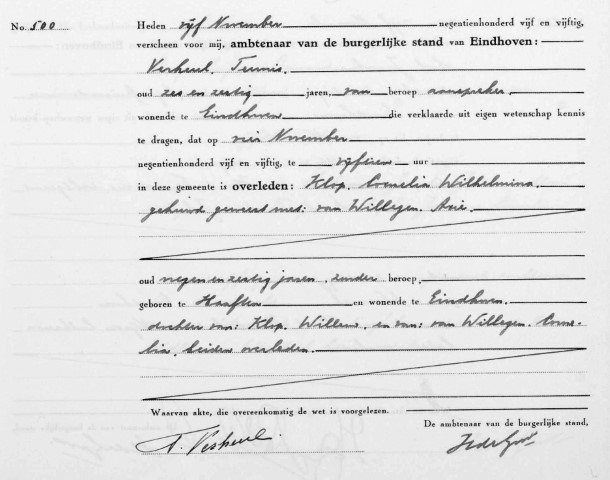 No 500 Heden vijf November negentienhonderd vijf en vijftig,
verscheen voor mij, ambtenaar van de burgerlijke stand van Eindhoven:
Verheul, Teunis,
oud zes en zestig jaren, van beroep aanspreker,
wonende te Eindhoven die verklaarde uit eigen wetenschap kennis
te dragen, dat op vier November
negentienhonderd vijf en vijftig, te vijftien uur
in deze gemeente is overleden: Klop, Cornelia Wilhelmina,
gehuwd geweest met: van Willegen, Arie.
oud negen en zestig jaren, zonder beroep,
geboren te Haaften en wonende te Eindhoven,
dochter van: Klop, Willem, en van: van Willegen, Corne-
lia, beiden overleden.
Waarvan akte, die overeenkomstig de wet is voorgelezen.
De ambtenaar van de burgerlijke stand,
T. Verheul.